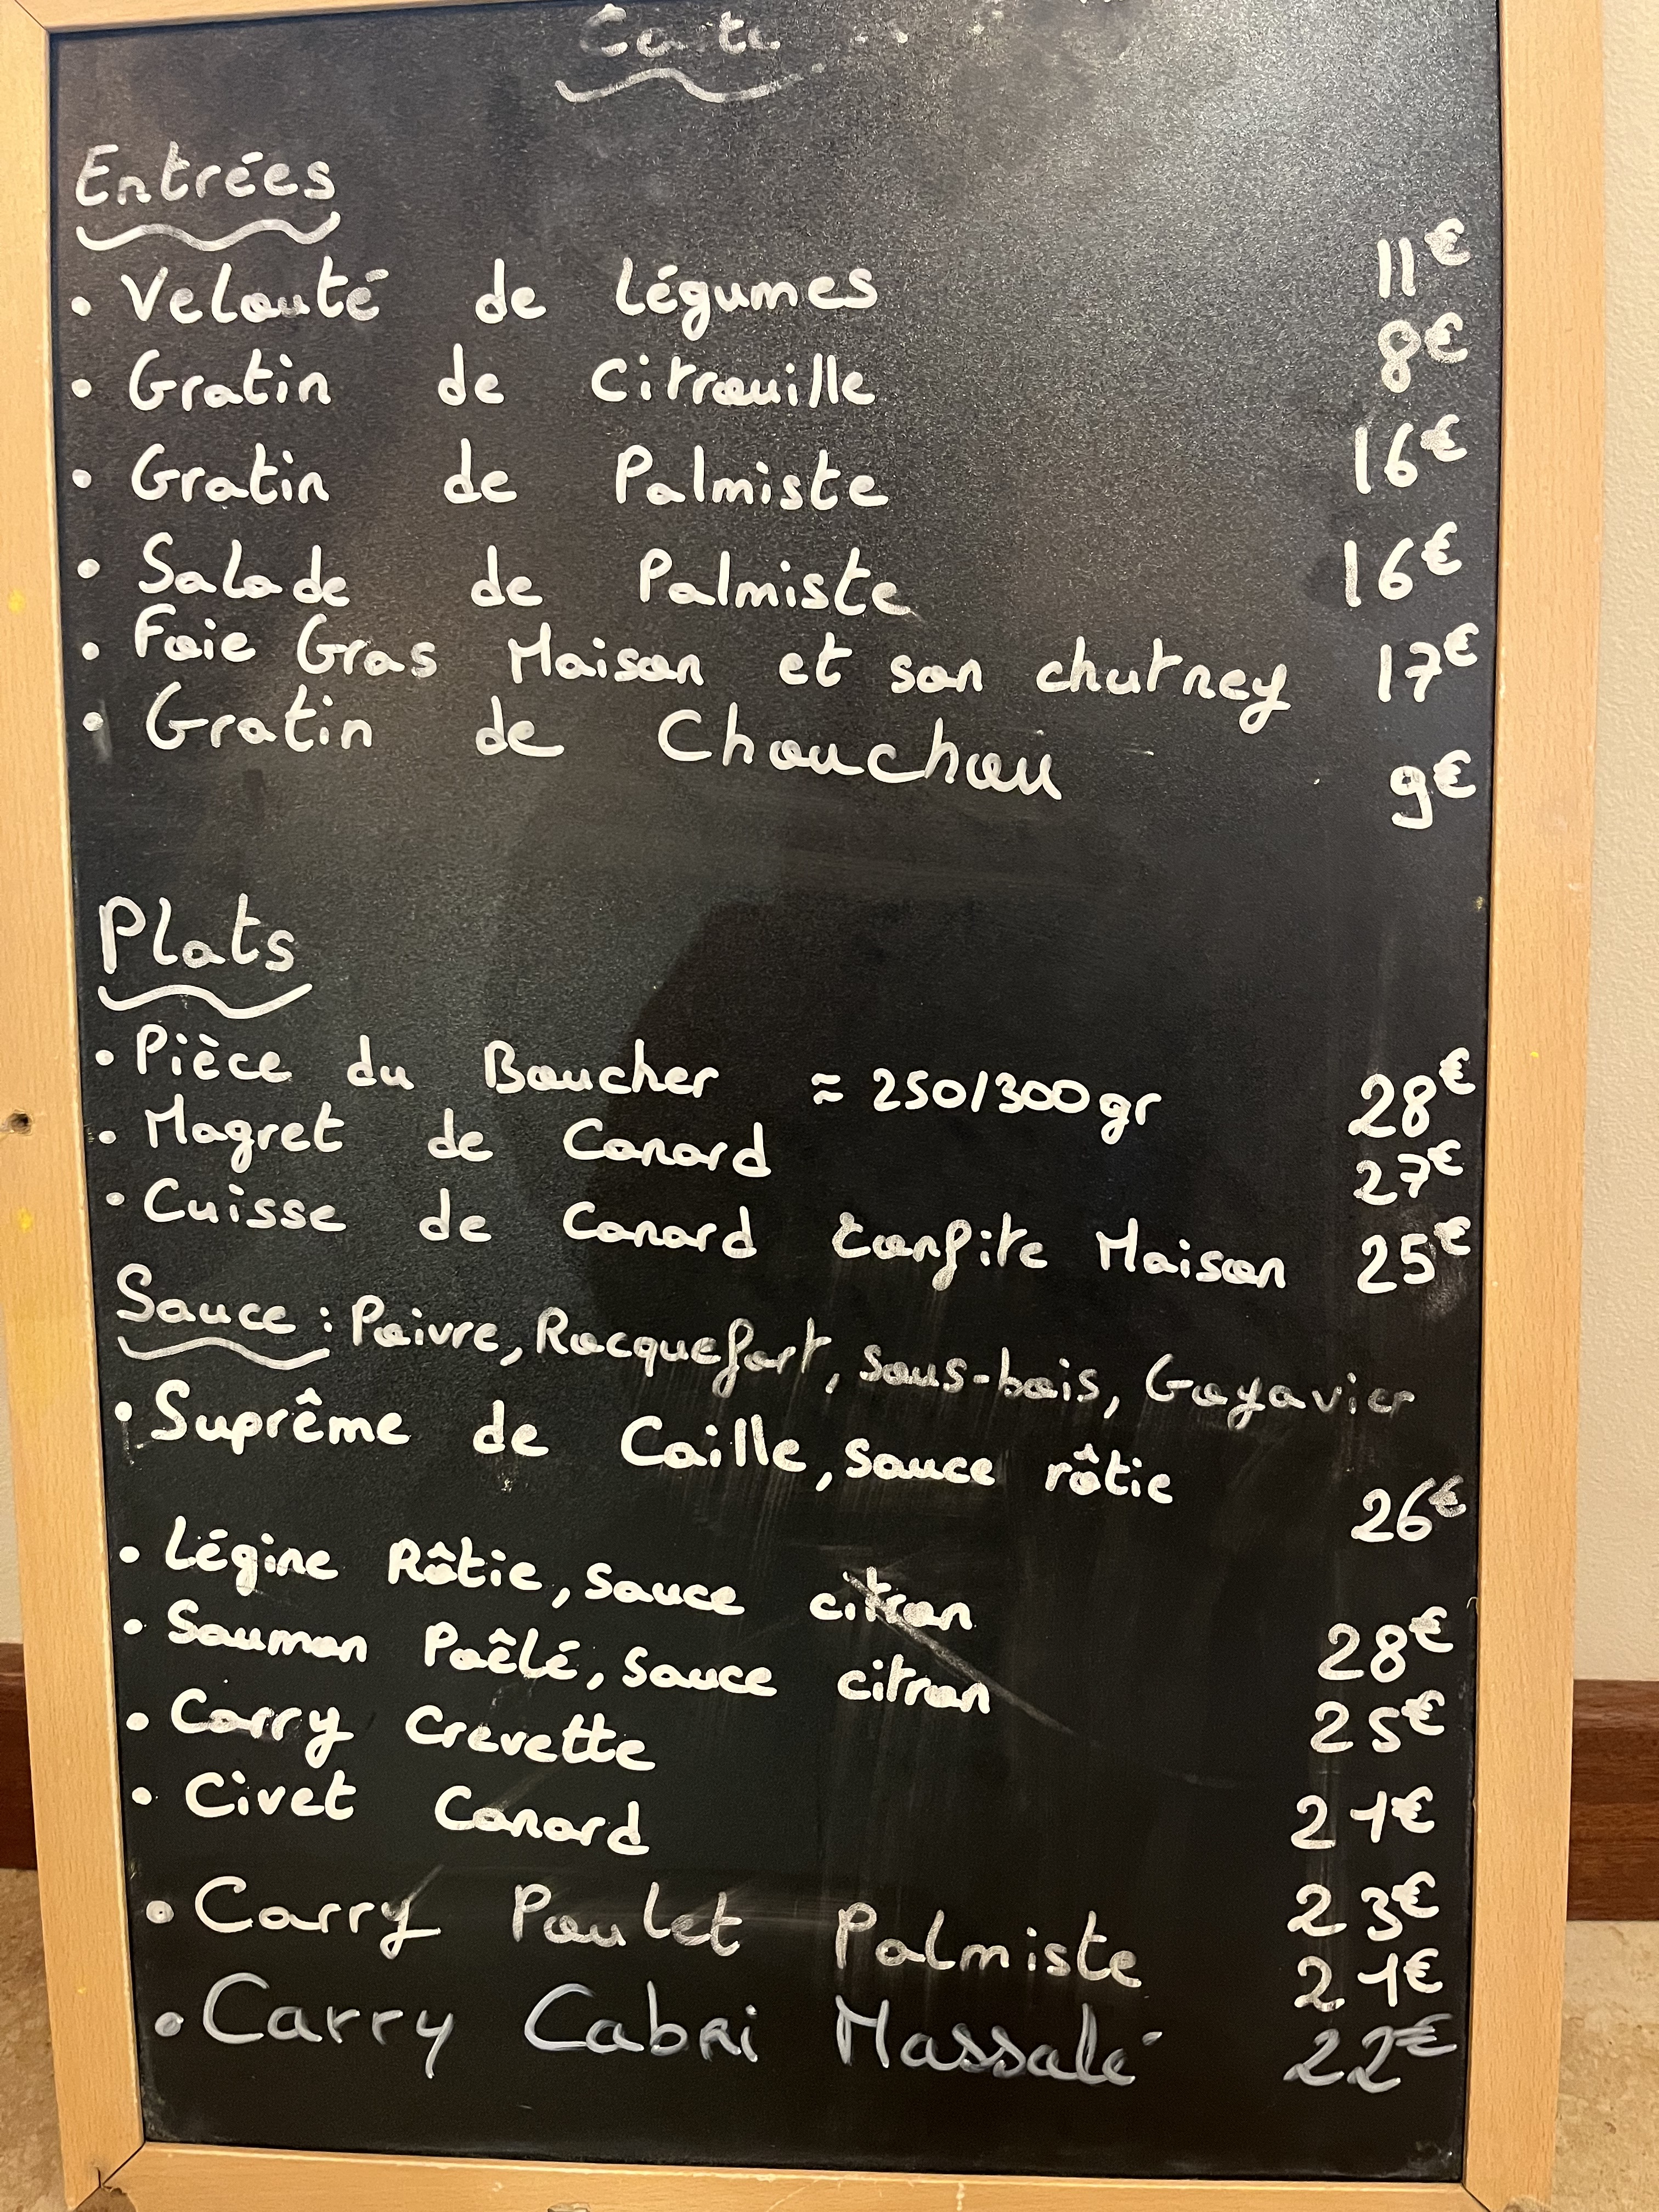 Carte
Entrées
• Velouté de légumes 11€
• Gratin de citrouille 8€
• Gratin de Palmiste 16€
• Salade de Palmiste 16€
• Foie Gras Maison et son chutney 17€
• Gratin de Chouchou 9€
Plats
• Pièce du Boucher ≈ 250/300gr 28€
• Magret de Canard 27€
• Cuisse de Canard Confite Maison 25€
Sauce : Poivre, Rocquefort, sous-bois, Goyavier
• Suprême de Caille, sauce rôtie 26€
• Légine Rôtie, sauce citron 28€
• Saumon Poêlé, sauce citron 25€
• Carry Crevette 21€
• Civet Canard 23€
• Carry Poulet Palmiste 21€
• Carry Cabri Massalé 22€